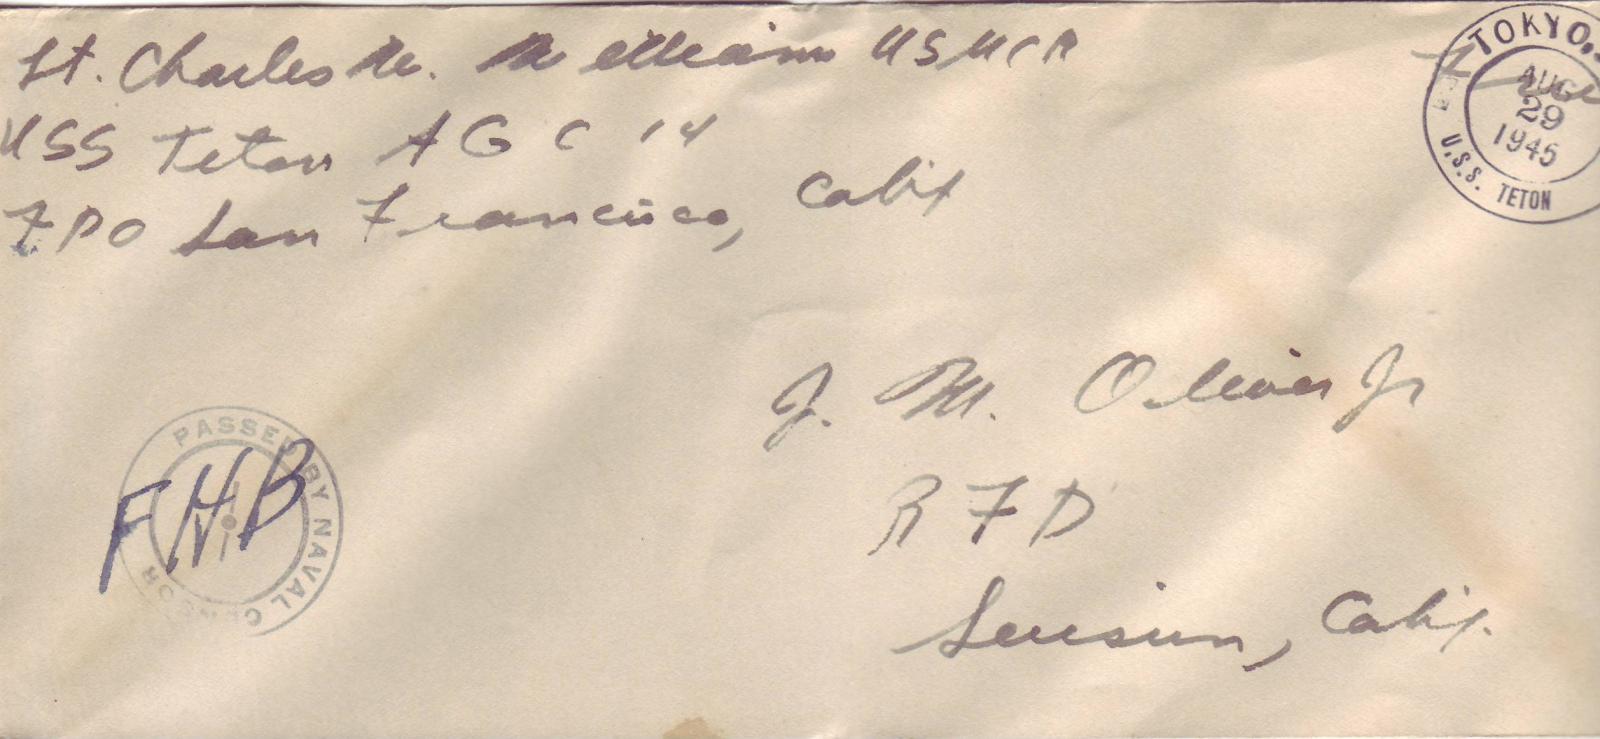 Lt. Charles W. Williams USMCR
USS Teton AGC 14
FPO San Francisco, Calif
Free
TOKYO.
AUG
29
1945
U.S.S. TETON
J. M. Oliver Jr
RFD
Suisun, Calif.
PASSED BY NAVAL CENSOR
FHB